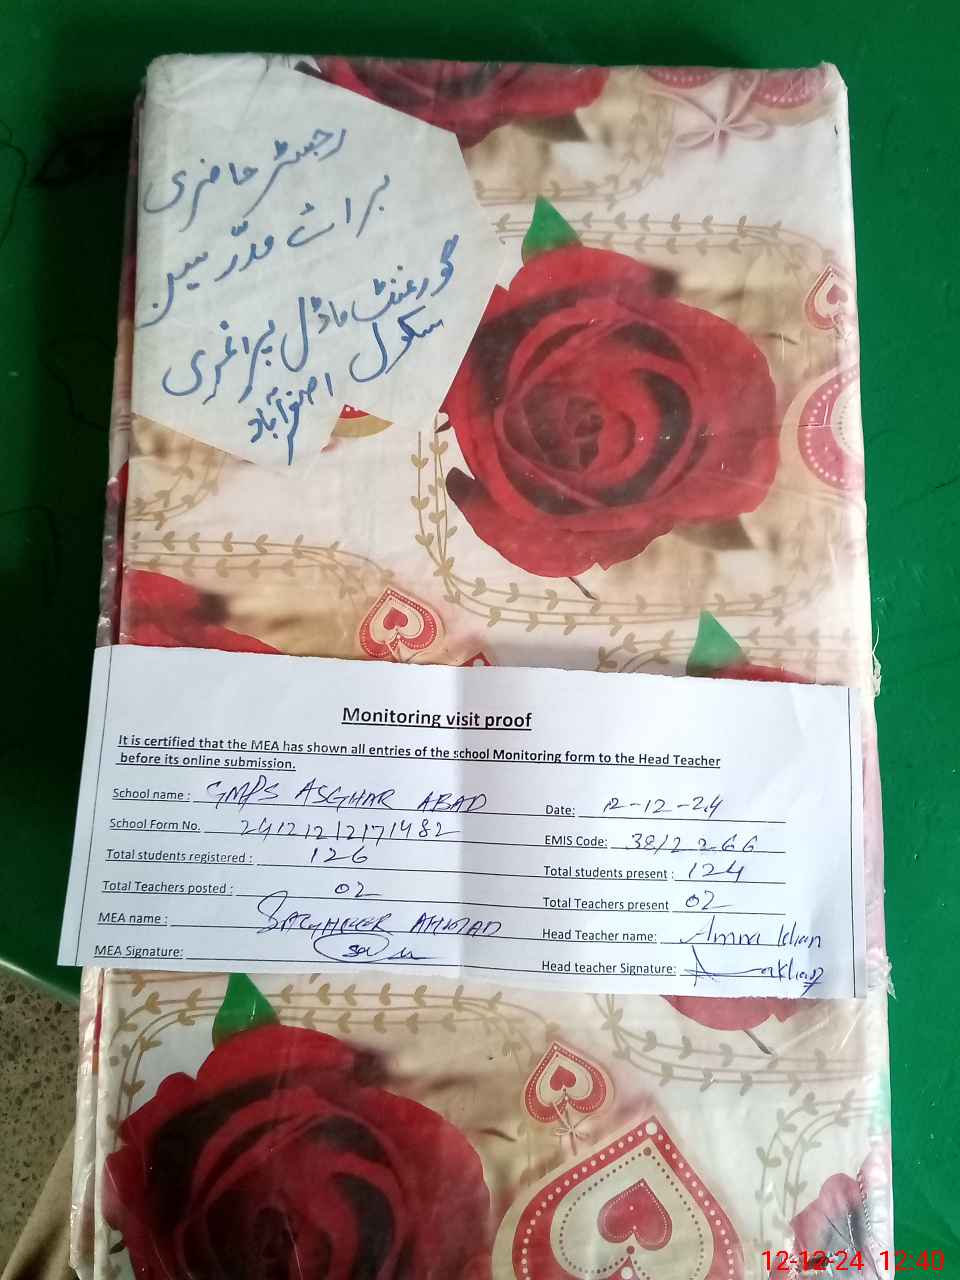 رجسٹر حاضری
برائے مدرّسین
گورنمنٹ ماڈل پرائمری
سکول اصغرآباد
Monitoring visit proof
It is certified that the MEA has shown all entries of the school Monitoring form to the Head Teacher
before its online submission.
School name : GMPS ASGHAR ABAD Date: 12-12-24
School Form No. EMIS Code:
Total students registered : 126 Total students present : 124
Total Teachers posted : 02 Total Teachers present 02
MEA name : AHMAD Head Teacher name: Amna
MEA Signature: Head teacher Signature:
12-12-24 12:40